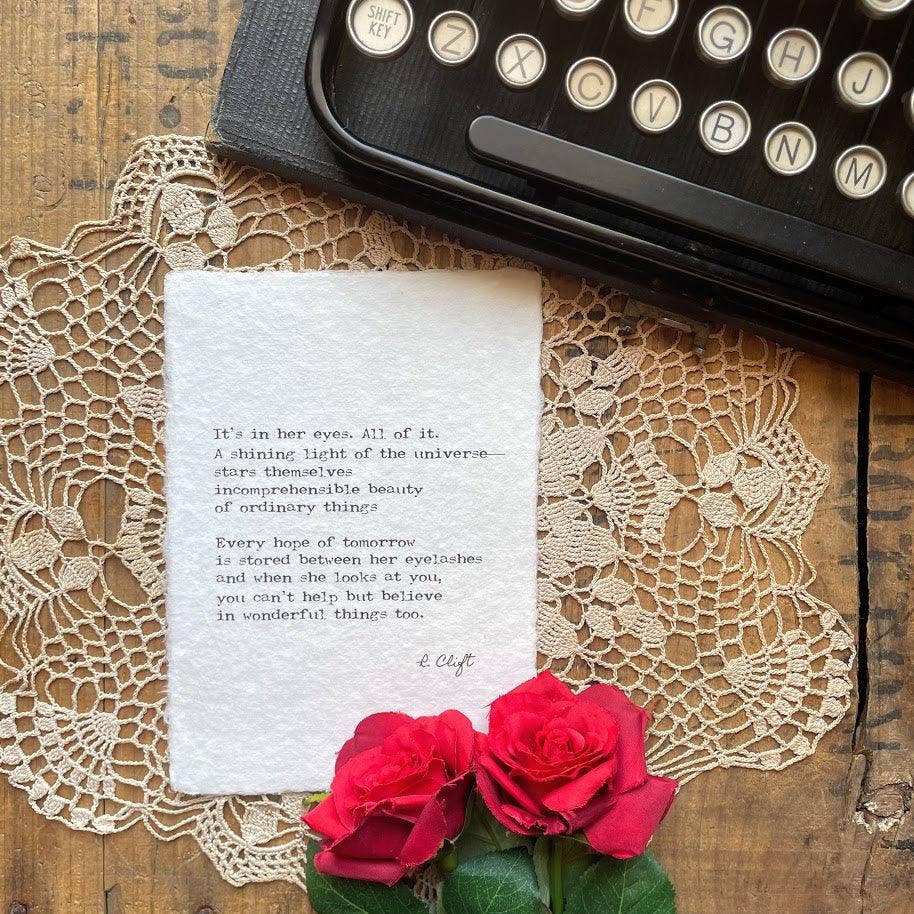 SHIFT
KEY
F
G
H
J
Z
X
C
V
B
N
M
It's in her eyes. All of it.
A shining light of the universe—
stars themselves
incomprehensible beauty
of ordinary things
Every hope of tomorrow
is stored between her eyelashes
and when she looks at you,
you can't help but believe
in wonderful things too.
R. Clift